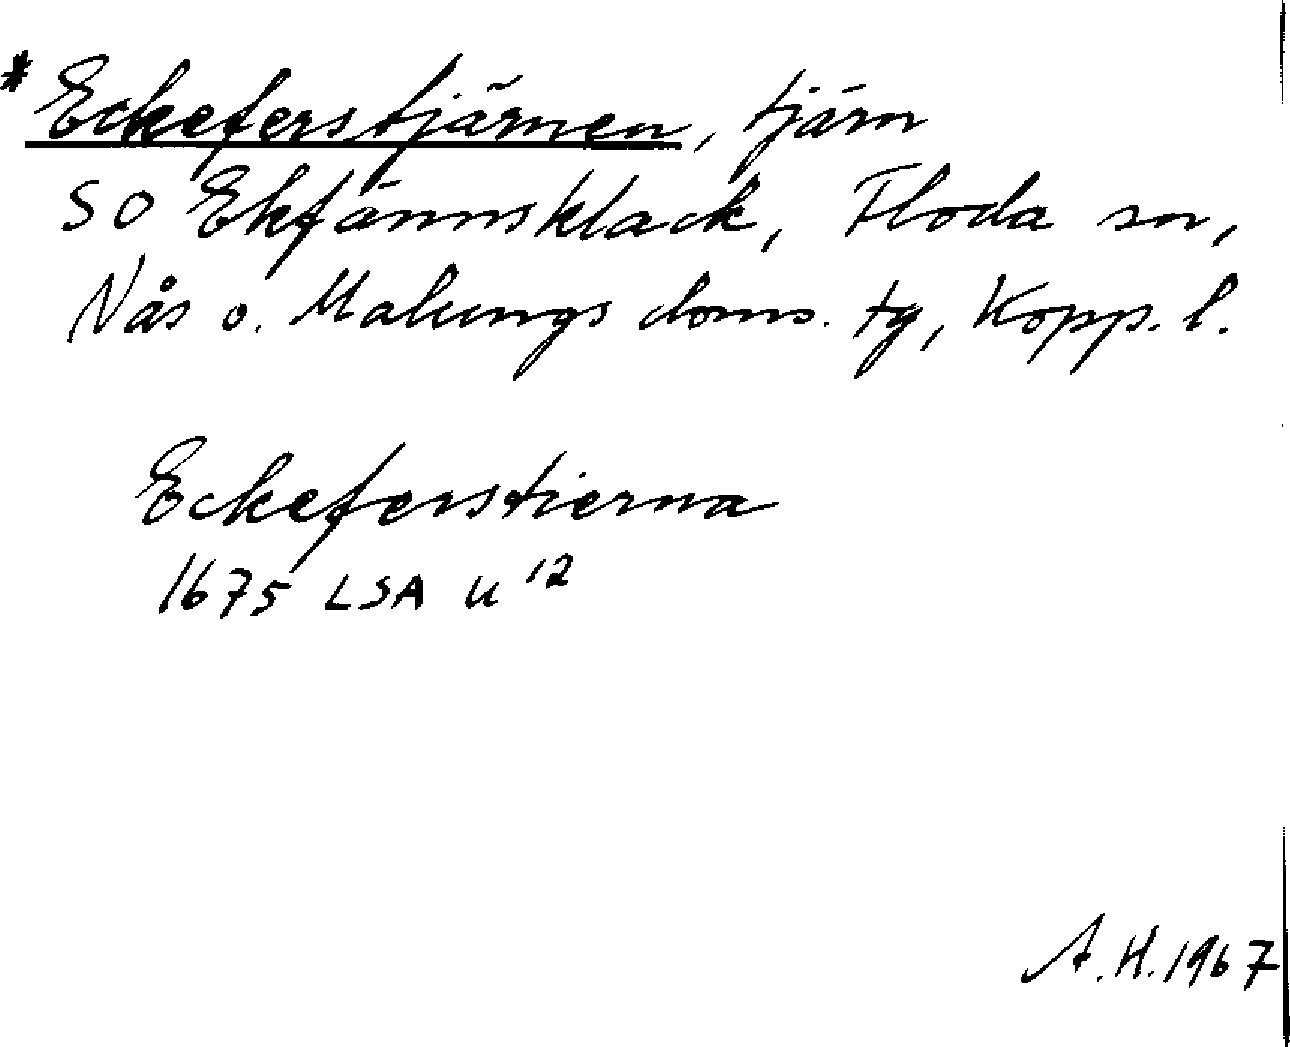 * Eckeferstjärnen, tjärn
SO Ekfännsklack, Floda sn,
Nås o. Malungs doms. tg, Kopp. l.
Eckeferstierna
1675 LSA U 12
A.H. 1967